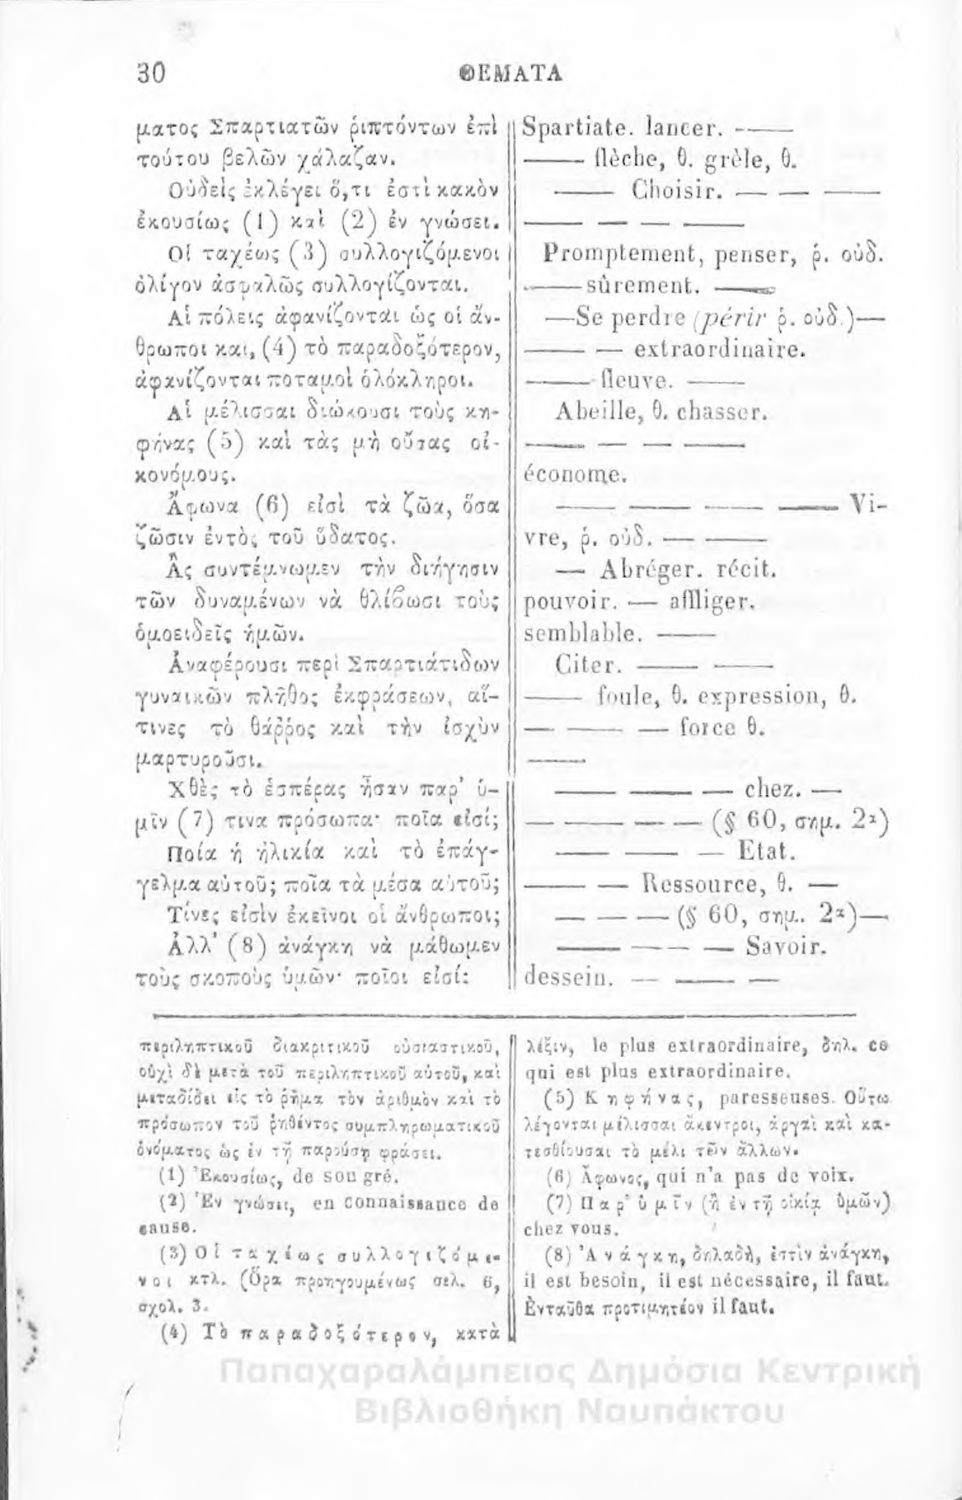 30
ΘΕΜΑΤΑ
ματος Σπαρτιατῶν ῥιπτόντων ἐπὶ
τούτου βελῶν χάλαζαν.
Οὐδεὶς ἐκλέγει ὅ,τι ἐστὶ κακὸν
ἑκουσίως (1) καὶ (2) ἐν γνώσει.
Οἱ ταχέως (3) συλλογιζόμενοι
ὀλίγον ἀσφαλῶς συλλογίζονται.
Αἱ πόλεις ἀφανίζονται ὡς οἱ ἄν-
θρωποι καὶ, (4) τὸ παραδοξότερον,
ἀφανίζονται ποταμοὶ ὁλόκληροι.
Αἱ μέλισσαι διώκουσι τοὺς κη-
φήνας (5) καὶ τὰς μὴ οὔσας οἰ-
κονόμους.
Ἄφωνα (6) εἰσὶ τὰ ζῶα, ὅσα
ζῶσιν ἐντὸς τοῦ ὕδατος.
Ἂς συντέμνωμεν τὴν διήγησιν
τῶν δυναμένων νὰ θλίβωσι τοὺς
ὁμοειδεῖς ἡμῶν.
Ἀναφέρουσι περὶ Σπαρτιάτιδων
γυναικῶν πλῆθος ἐκφράσεων, αἵ-
τινες τὸ θάῤῥος καὶ τὴν ἰσχὺν
μαρτυροῦσι.
Χθὲς τὸ ἑσπέρας ἦσαν παρ' ὑ-
μῖν (7) τινα πρόσωπα· ποῖα εἰσί;
Ποία ἡ ἡλικία καὶ τὸ ἐπάγ-
γελμα αὐτοῦ; ποῖα τὰ μέσα αὐτοῦ;
Τίνες εἰσὶν ἐκεῖνοι οἱ ἄνθρωποι;
Ἀλλ' (8) ἀνάγκη νὰ μάθωμεν
τοὺς σκοποὺς ὑμῶν· ποῖοι εἰσί;
Spartiate. lancer. ——
—— flèche, θ. grèle, θ.
—— Choisir. — — ——
—— — — ——
Promptement, penser, ῥ. οὐδ.
—— sûrement. ——
—Se perdre (périr ῥ. οὐδ.)—
—— — extraordinaire.
—— fleuve. ——
Abeille, θ. chasser.
—— — — ——
économe.
—— —— —— —— Vi-
vre, ῥ. οὐδ. — ——
— Abréger. récit.
pouvoir. — affliger.
semblable. ——
Citer. —— ——
—— foule, θ. expression, θ.
— —— — force θ.
——
—— —— — chez. —
— — — — — (§ 60, σημ. 2ᵃ)
—— —— — Etat.
—— — Ressource, θ. —
— — — (§ 60, σημ. 2ᵃ)—
—— —— — Savoir.
dessein. — —— —
περιληπτικοῦ διακριτικοῦ οὐσιαστικοῦ,
οὐχὶ δὲ μετὰ τοῦ περιληπτικοῦ αὐτοῦ, καὶ
μεταδίδει εἰς τὸ ῥῆμα τὸν ἀριθμὸν καὶ τὸ
πρόσωπον τοῦ ῥηθέντος συμπληρωματικοῦ
ὀνόματος ὡς ἐν τῇ παρούσῃ φράσει.
(1) Ἑκουσίως, de son gré.
(2) Ἐν γνώσει, en connaissance de
cause.
(3) Οἱ ταχέως συλλογιζόμε-
νοι κτλ. (Ὅρα προηγουμένως σελ. 6,
σχολ. 3.
(4) Τὸ παραδοξότερον, κατὰ
λέξιν, le plus extraordinaire, δηλ. ce
qui est plus extraordinaire.
(5) Κηφήνας, paresseuses. Οὕτω
λέγονται μέλισσαι ἄκεντροι, ἀργαὶ καὶ κα-
τεσθίουσαι τὸ μέλι τῶν ἄλλων.
(6) Ἄφωνος, qui n'a pas de voix.
(7) Παρ' ὑμῖν (ἢ ἐν τῇ οἰκίᾳ ὑμῶν)
chez vous.
(8) Ἀνάγκη, δηλαδὴ, ἐστὶν ἀνάγκη,
il est besoin, il est nécessaire, il faut.
Ἐνταῦθα προτιμητέον il faut.
Παπαχαραλάμπειος Δημόσια Κεντρική
Βιβλιοθήκη Ναυπάκτου